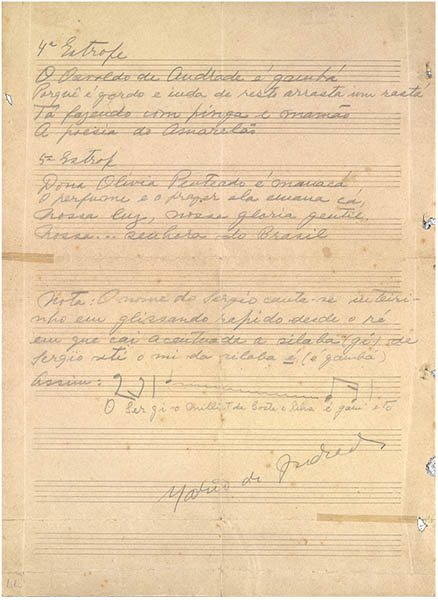 4ª Estrofe
O Osvaldo de Andrade é gambá
Porquê é gordo e inda de resto arrasta um rastá
Tá fazendo com pinga e mamão
A poesia do Amarelão
5ª Estrof
Dona Olivia Penteado é manacá
O perfume e o prazer ela emana cá,
Nossa luz, nossa gloria gentil,
Nossa... senhora do Brasil
Nota: O nome do Sergio canta-se inteiri-
nho em glissando rapido desde o ré
em que cai acentuada a silaba (gi) de
Sergio até o mi da silaba é (o gambá)
Assim:
O Ser gi-o Milliet da Costa e Silva é gam
Mario de Andrade
11